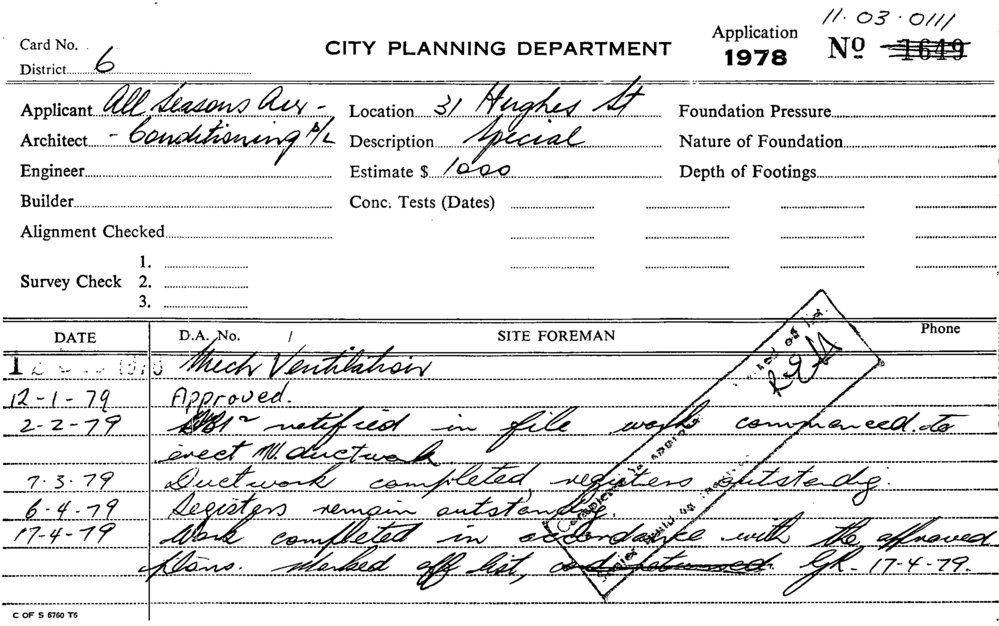 11·03·0111
Card No. CITY PLANNING DEPARTMENT Application
District 6 1978 No 1649
Applicant All Seasons Air - Location 31 Hughes St Foundation Pressure
Architect - Conditioning P/L Description Special Nature of Foundation
Engineer Estimate $ 1000 Depth of Footings
Builder Conc. Tests (Dates)
Alignment Checked
1.
Survey Check 2.
3.
DATE D.A. No. / SITE FOREMAN Phone
Mech Ventilation
12-1-79 Approved.
2-2-79 notified in file work commenced. to
erect M. ductwork
7.3.79 Ductwork completed registers outstandig.
6-4-79 Registers remain outstanding.
17-4-79 Work completed in accordance with the approved
plans. Marked off list, and returned. GK- 17-4-79.
C OF S 5760 T6